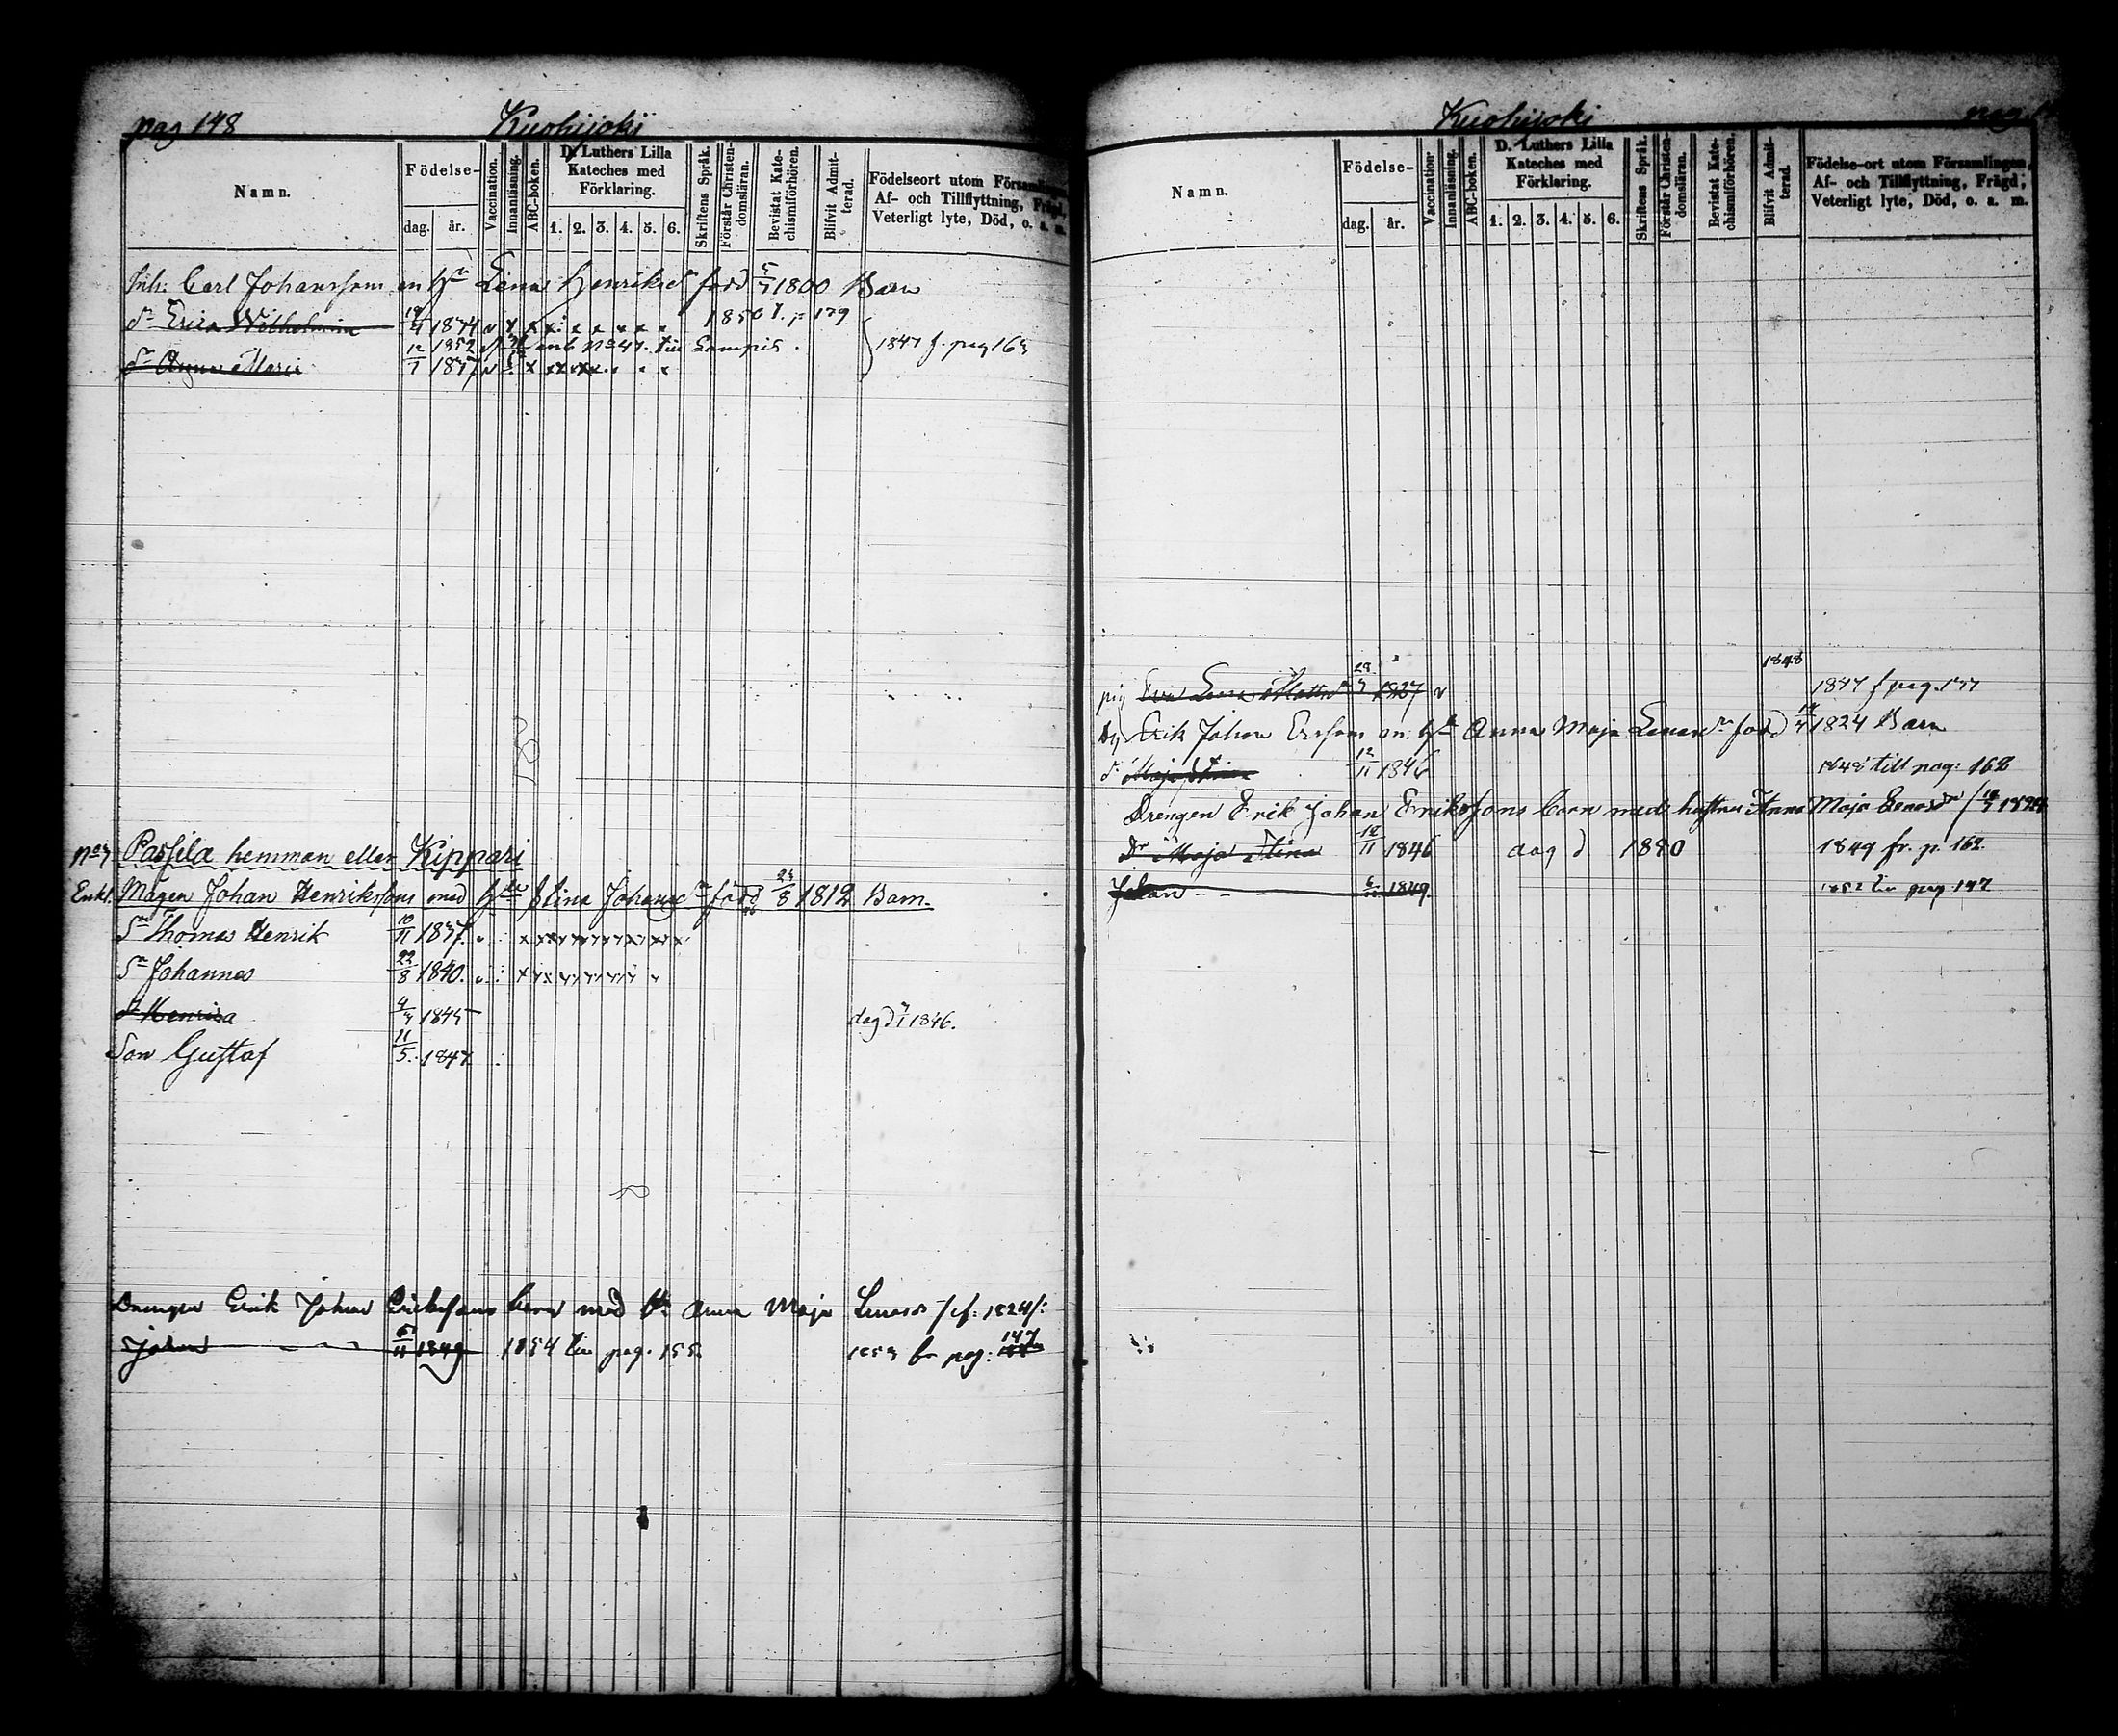 pag 148
Kuohijoki
Namn.
Födelse-
dag.
år.
Vaccination.
Innanläsning.
ABC-boken.
D. Luthers Lilla
Kateches med
Förklaring.
1. 2. 3. 4. 5. 6.
Skriftens Språk.
Förstår Christen-
domsläran.
Bevistat Kate-
chismiförhören.
Blifvit Admit-
terad.
Födelseort utom Församlingen
Af- och Tillflyttning, Frägd,
Veterligt lyte, Död, o. a. m.
Inh: Carl Johansson Lena Henriksd född 1800 Barn
Dr Erica Wilhelmina 1850 p 179
1852 No 47. till Lampis.
Dr Anna Maria 1837
1847 f. pag 163
No 7 Passila hemman eller Kippari
Enkl. Mågen Johan Henrikssons med Stina Johansdr född 1812 Barn.
Sn Thomas Henrik 10/11 1837.
Sn Johannes 22/8 1840.
Dr Henrica 1845 dag d 1846.
Son Gustaf 11/5. 1847
Drengen Erik Johan Erikssons barn med Anna Maja Lenasd /: f: 1824/:
Johan 6/11 1849 1854 till pag. 155. 1853 fr pag: 147
Kuohijoki
pag. 1
Namn.
Födelse-
dag.
år.
Vaccination
Innanläsning.
ABC-boken.
D. Luthers Lilla
Kateches med
Förklaring.
1. 2. 3. 4. 5. 6.
Skriftens Språk.
Förstår Christen-
domsläran.
Bevistat Kate-
chismiförhören.
Blifvit Admit-
terad.
Födelse-ort utom Församlingen,
Af- och Tillflyttning, Frägd,
Veterligt lyte, Död, o. a. m.
1848
pig Eva Lena Mattsdr 1827 1847 f pag. 177
Erik Johan Ersson Anna Maja Lenasdr född 1824 Barn
dr Maja Stina 12/11 1846 1848 till pag: 162
Drengen Erik Johan Erikssons barn med hustru Anna Maja Lenasdr 1824
Dr Maja Stina 12/11 1846 dag d 1880 1849 fr. p. 162
Johan 1849. 1852 till pag 147